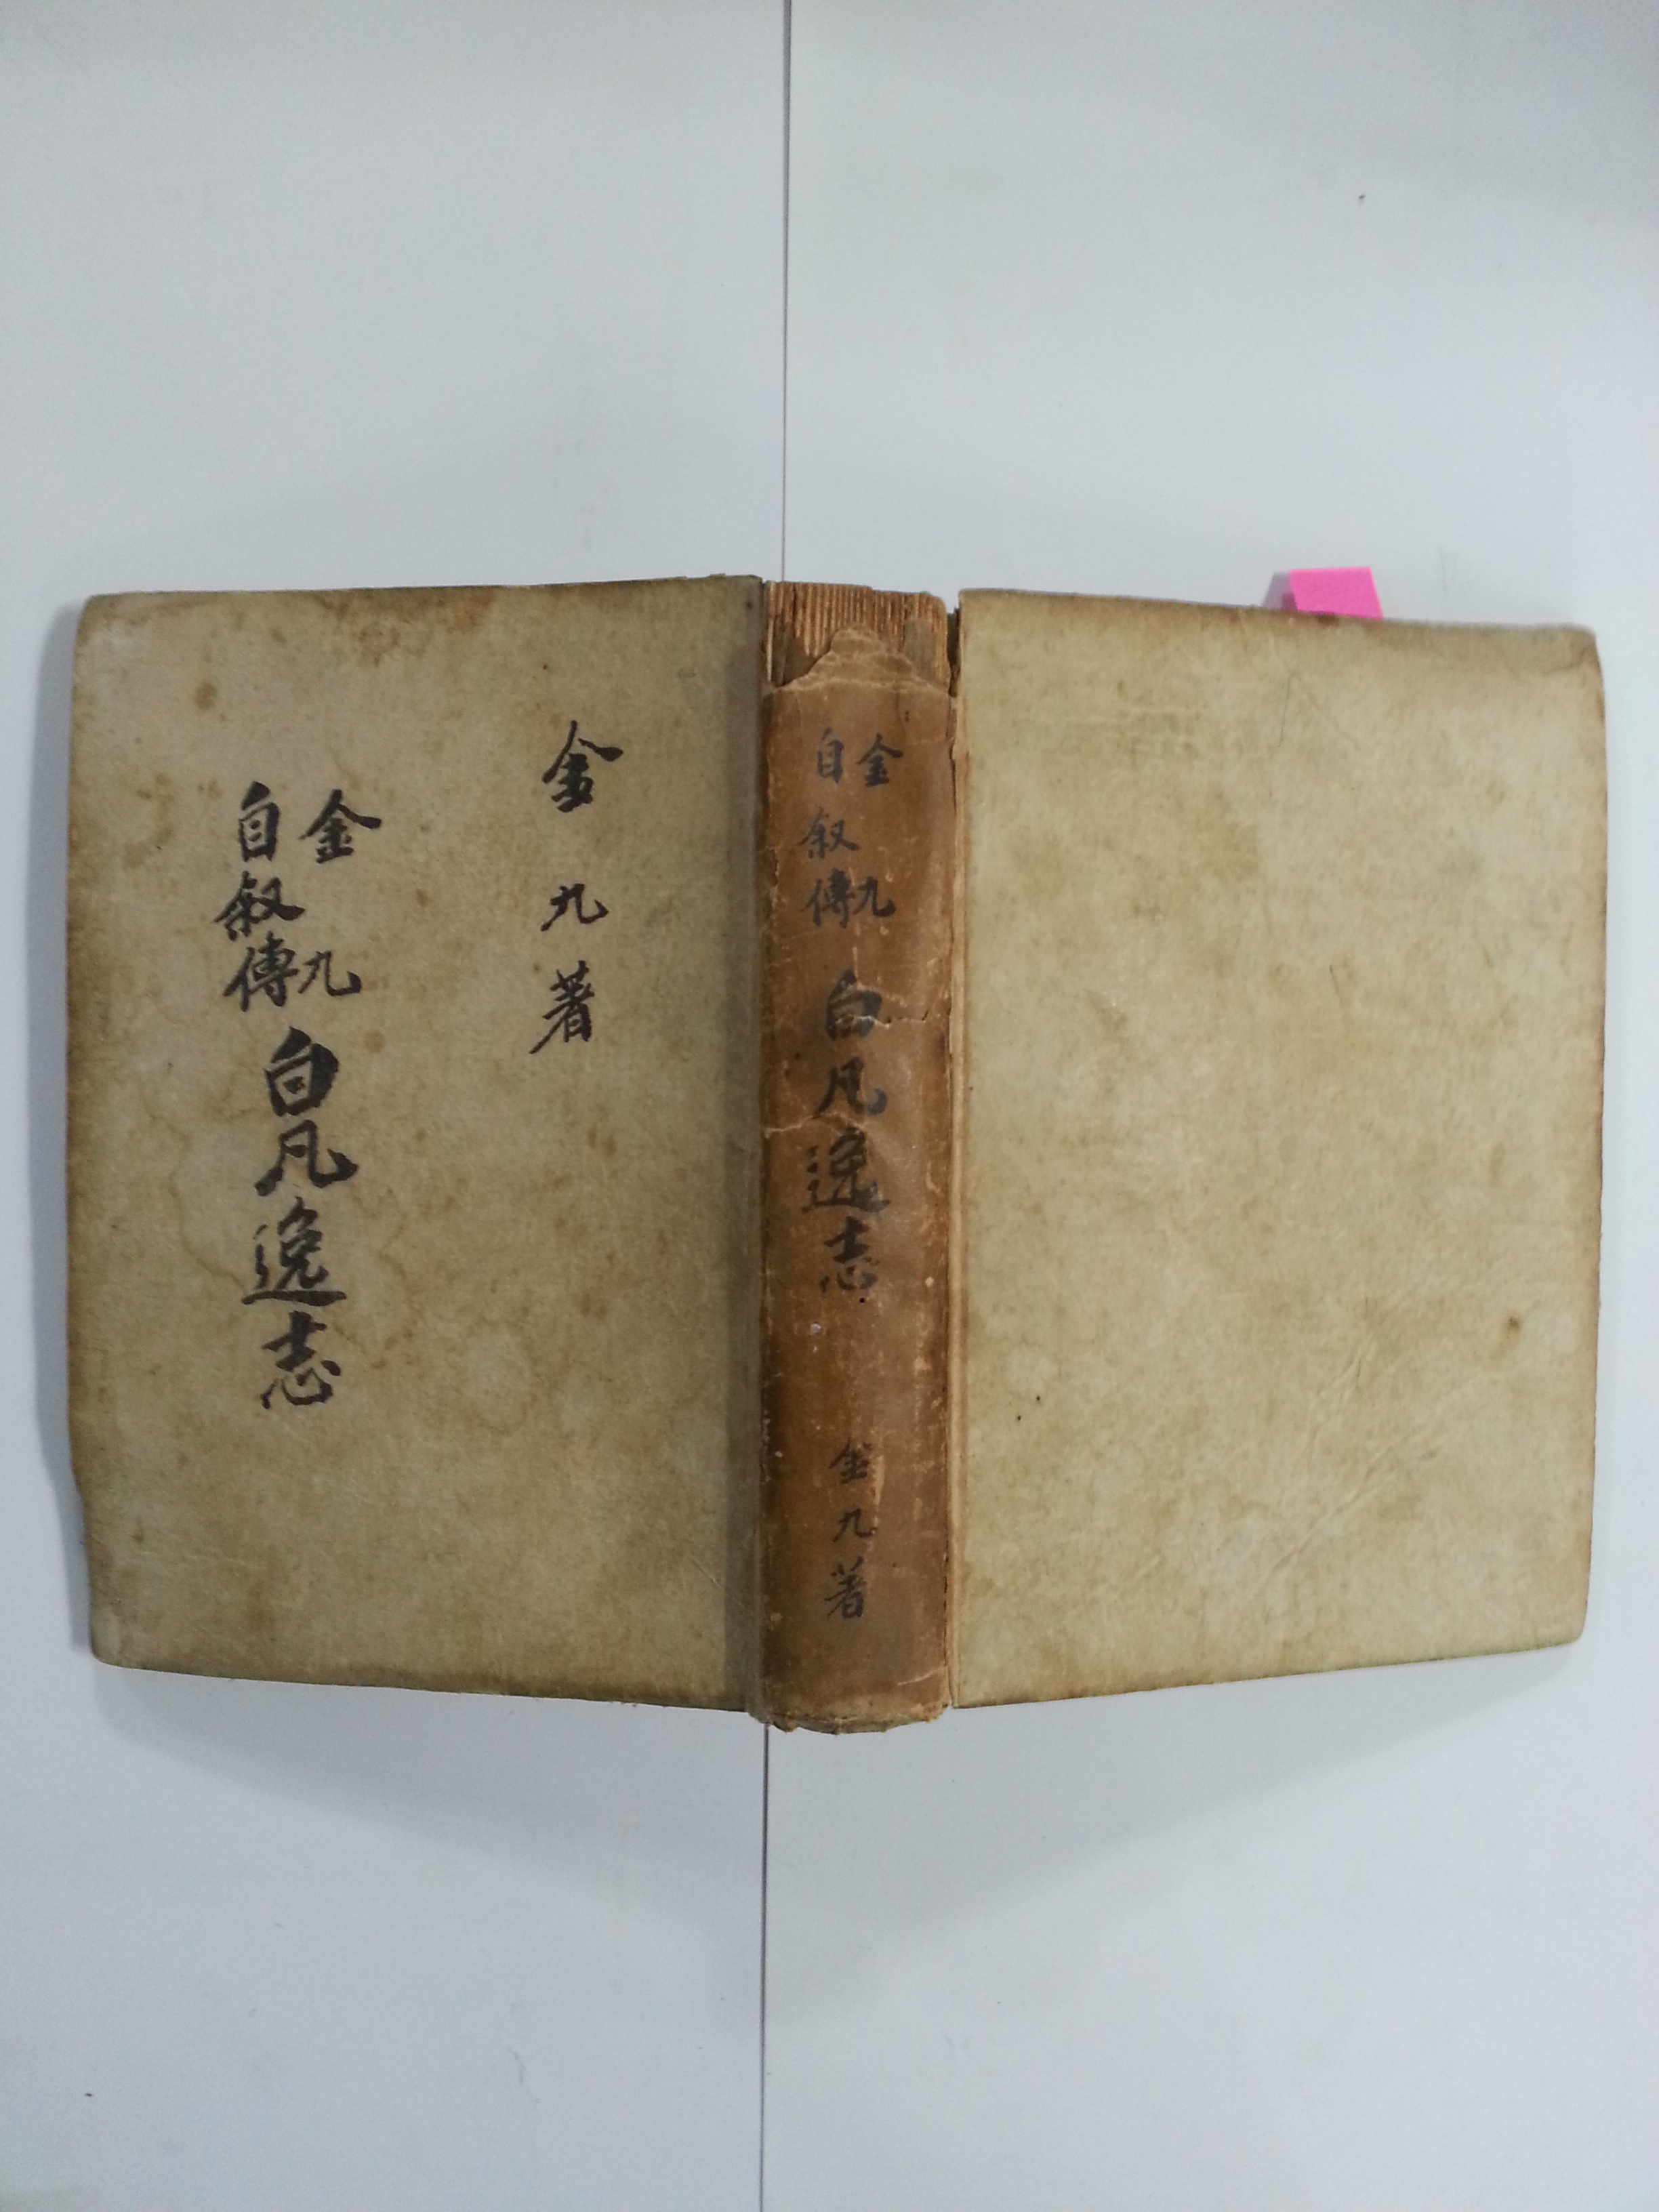 金九著
金九
自叙傳
白凡逸志
金九
自叙傳
白凡逸志
金九著